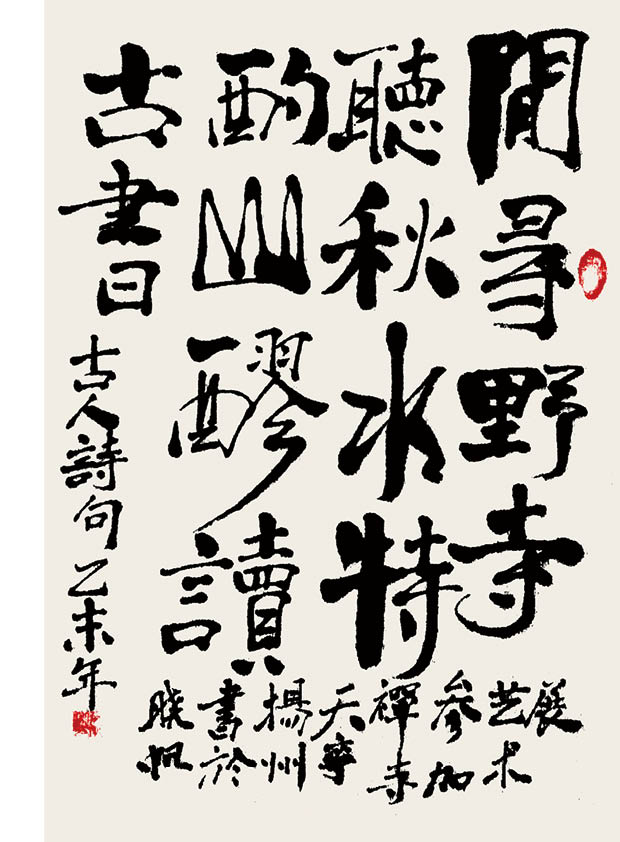 閒尋野寺
聽秋水特
酌山醪讀
古書
古人詩句乙未年
晓帆
書於
揚州
天寧
禪寺
参加
艺术
展